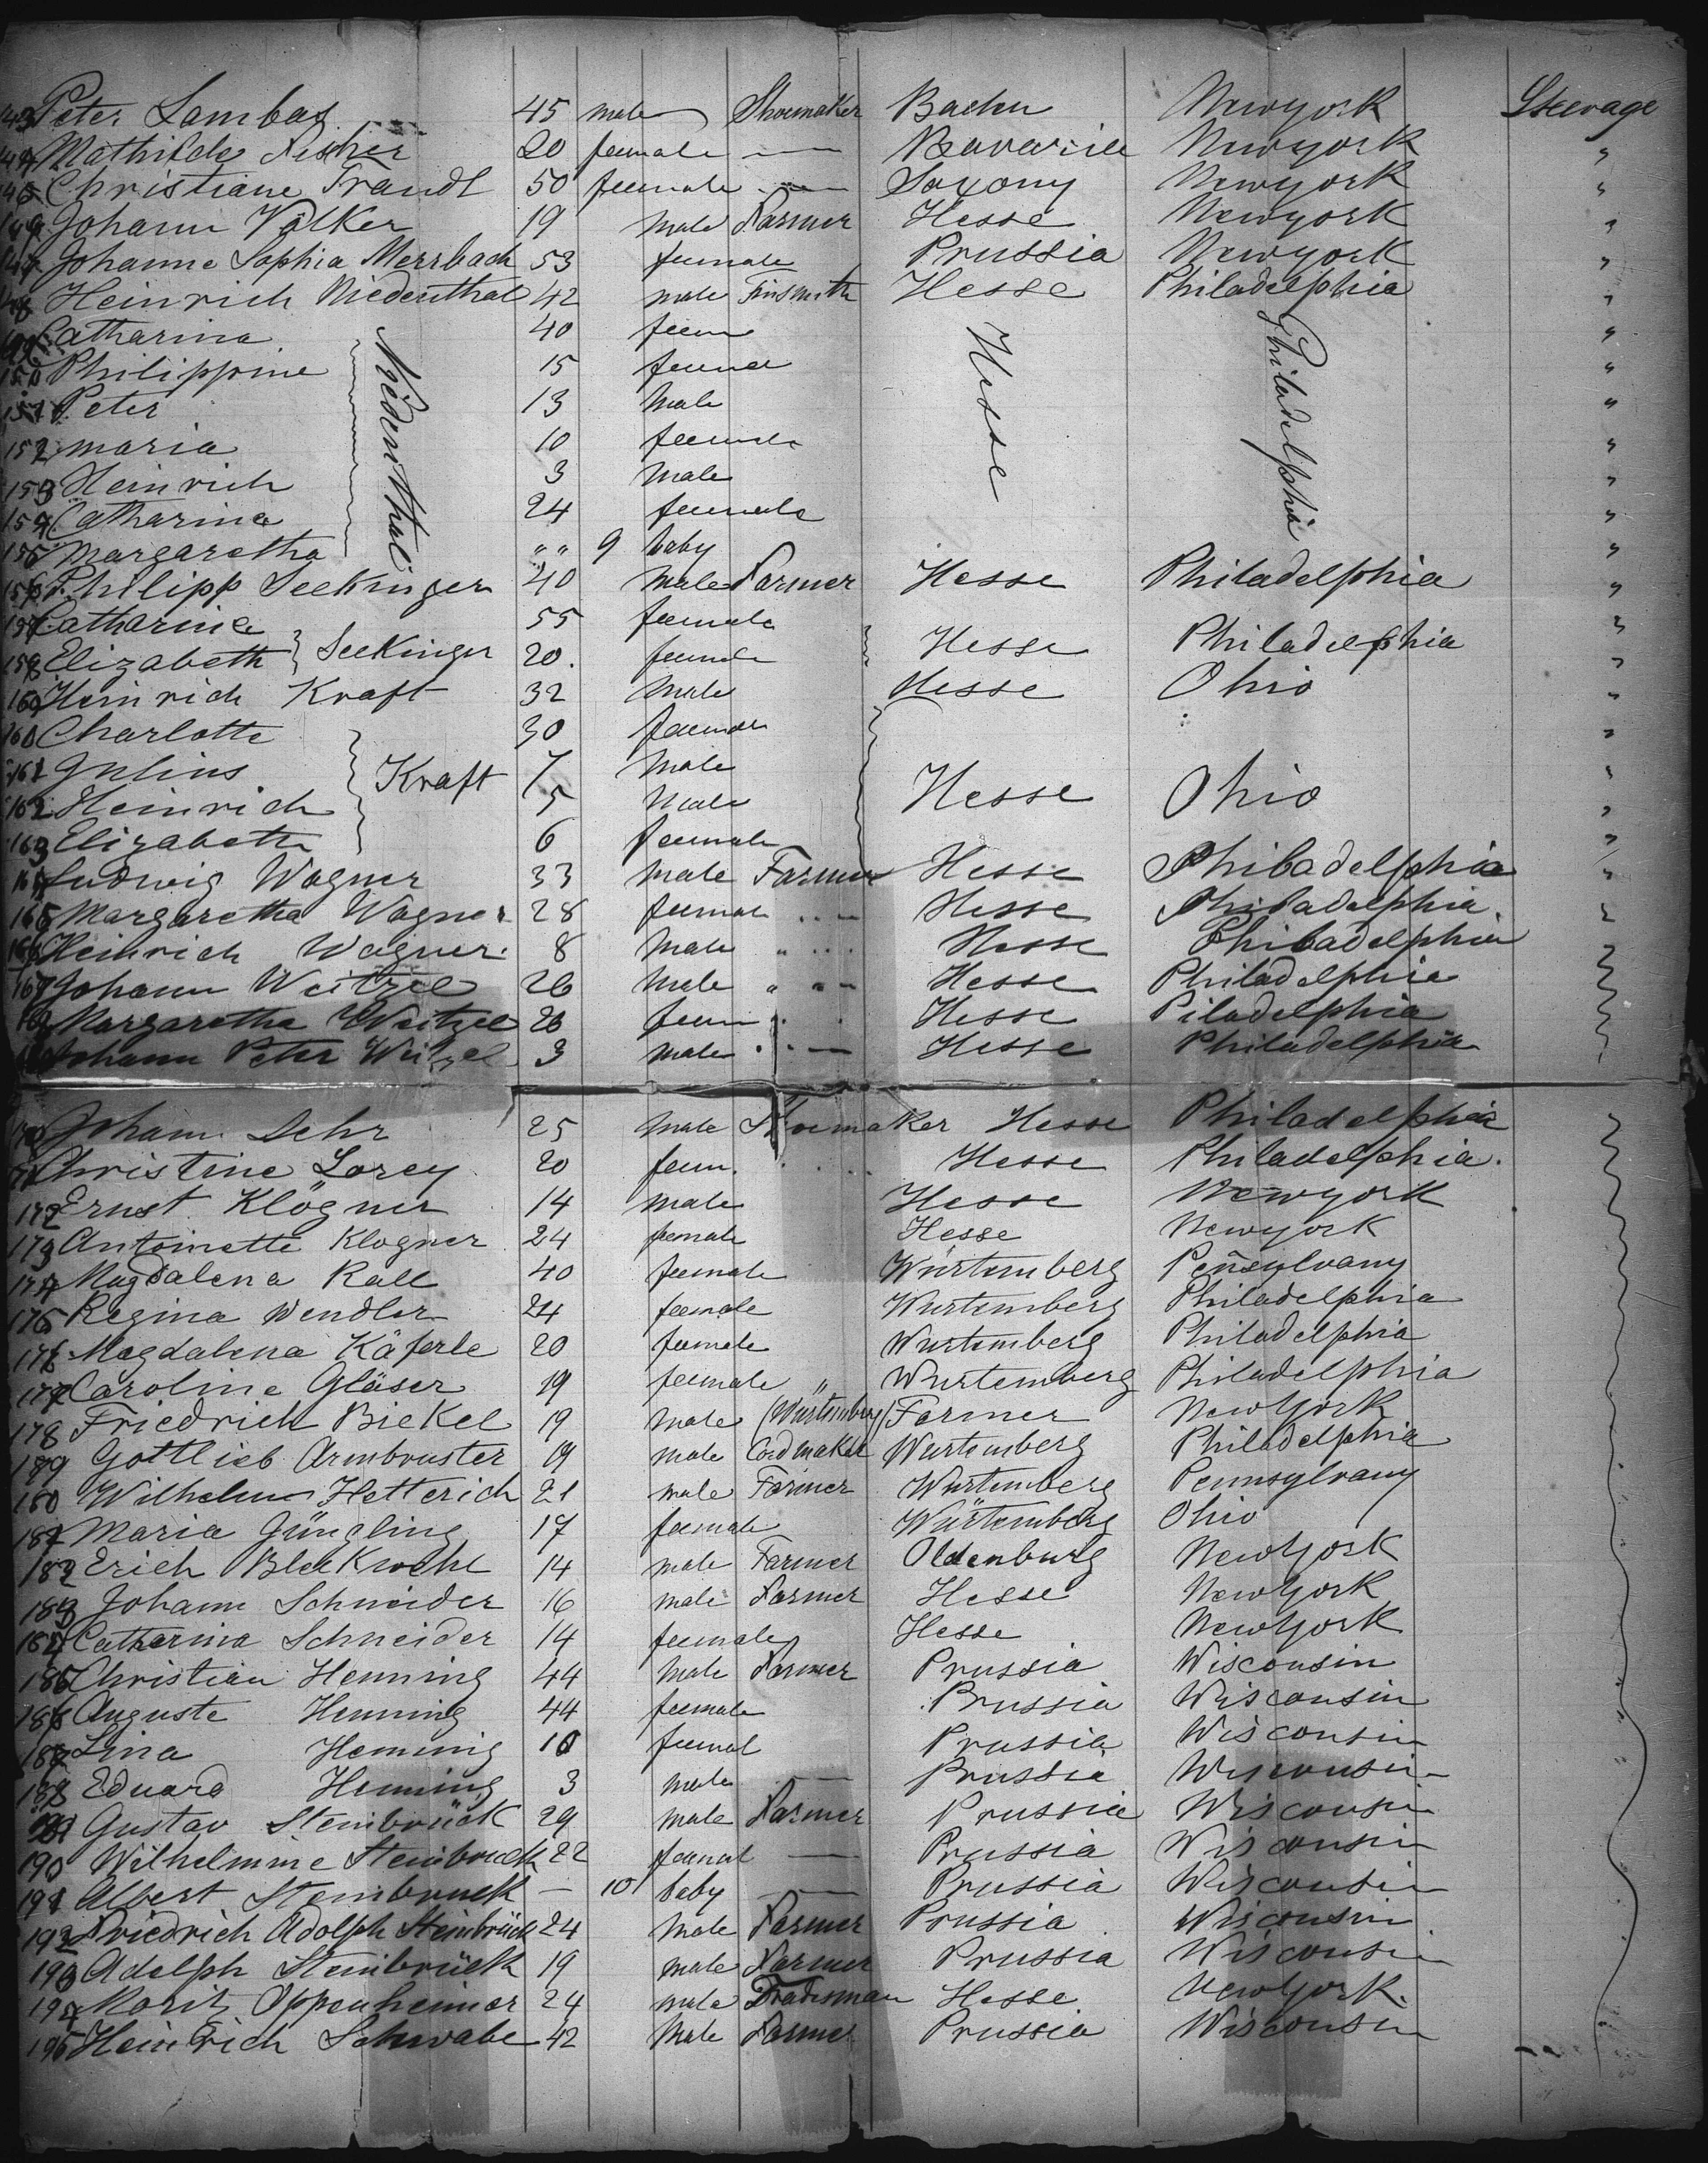 143 Peter Lambas 45 male Shoemaker Baden Newyork Steerage
144 Mathilde Fischer 20 feemale — Bavaria Newyork "
145 Christiane Frandt 50 feemale — Saxony Newyork "
146 Johann Völker 19 male Farmer Hesse Newyork "
147 Johanne Sophia Merrbach 53 feemale Prussia Newyork "
148 Heinrich Niedenthal 42 male Tinsmith Hesse Philadelphia "
149 Catharina Niedenthal 40 feem Hesse Philadelphia "
150 Philippine 15 feemal "
151 Peter 13 Male "
152 maria 10 feemale "
153 Heinrich 3 Male "
154 Catharina 24 feemale "
155 Margaretha " " 9 baby "
156 Philipp Seekinger 40 male Farmer Hesse Philadelphia "
157 Catharine 55 feemale "
158 Elizabeth } Seekinger 20. feemale Hesse Philadelphia "
159 Heinrich Kraft 32 Male Hesse Ohio "
160 Charlotte 30 feemale "
161 Julius } Kraft 7 Male Hesse Ohio "
162 Heinrich 5 Male "
163 Elizabeth 6 feemale "
164 Ludwig Wagner 33 male Farmer Hesse Philadelphia "
165 Margaretha Wagner 28 feemale Hesse Philadelphia
166 Heinrich Wagner 8 Male Hesse Philadelphia
167 Johann Weitzel 26 Male Hesse Philadelphia
168 Margaretha Weitzel 26 feem Hesse Piladelphia
169 Johann Peter Weitzel 3 male Hesse Philadelphia
170 Johann Dehr 25 male Shoemaker Hesse Philadelphia
171 Christine Lorey 20 feem. Hesse Philadelphia.
172 Ernst Klögner 14 male Hesse Newyork
173 Antoinette Klogner 24 female Hesse Newyork
174 Magdalena Rall 40 feemale Würtemberg Pen̄sylvany
175 Regina Wendler 24 feemale Wurtemberg Philadelphia
176 Magdalena Käferle 20 feemale Wurtemberg Philadelphia
177 Caroline Gläser 19 feemale " Wurtemberg Philadelphia
178 Friedrich Biekel 19 male (Würtemberg) Farmer NewYork
179 Gottlieb Armbruster 19 male Cordmaker Wurtemberg Philadelphia
180 Wilhelm Hetterich 21 male Farmer Wurtemberg Pennsylvany
181 Maria Güngling 17 feemale Würtemberg Ohio
182 Erich Blekwehl 14 male Farmer Oldenburg NewYork
183 Johann Schneider 16 male Farmer Hesse NewYork
184 Catharina Schneider 14 feemale Hesse NewYork
185 Christian Henning 44 Male Farmer Prussia Wisconsin
186 Auguste Henning 44 feemale Prussia Wisconsin
187 Lina Henning 10 feemal Prussia Wisconsin
188 Eduard Henning 3 male — Prussia Wisconsin
189 Gustav Steinbrück 29 male Farmer Prussia Wisconsin
190 Wilhelmine Steinbruck 22 feemal — Prussia Wisconsin
191 Albert Steinbruck — 10 baby — Prussia Wisconsin
192 Friedrich Adolph Steinbrück 24 male Farmer Prussia Wisconsin
193 Adolph Steinbrück 19 male Farmer Prussia Wisconsin
194 Moritz Oppenheimer 24 male Tradesman Hesse NewYork.
195 Heinrich Schwabe 42 Male Farmer Prussia Wisconsin